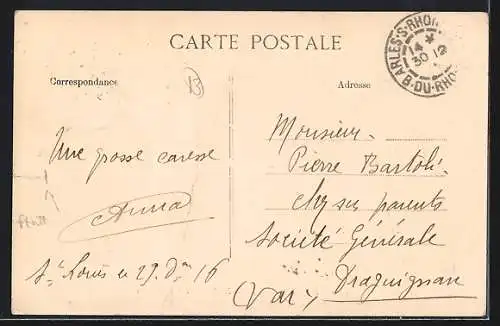 CARTE POSTALE
Correspondance
Adresse
13
ARLES-S-RHONE
14 *
30 12
B-DU-RHO
Une grosse caresse
Anna
St Louis le 29 Dre 16
Monsieur
Pierre Bartoli
chez ses parents
Société Générale
Draguignan
(Var)